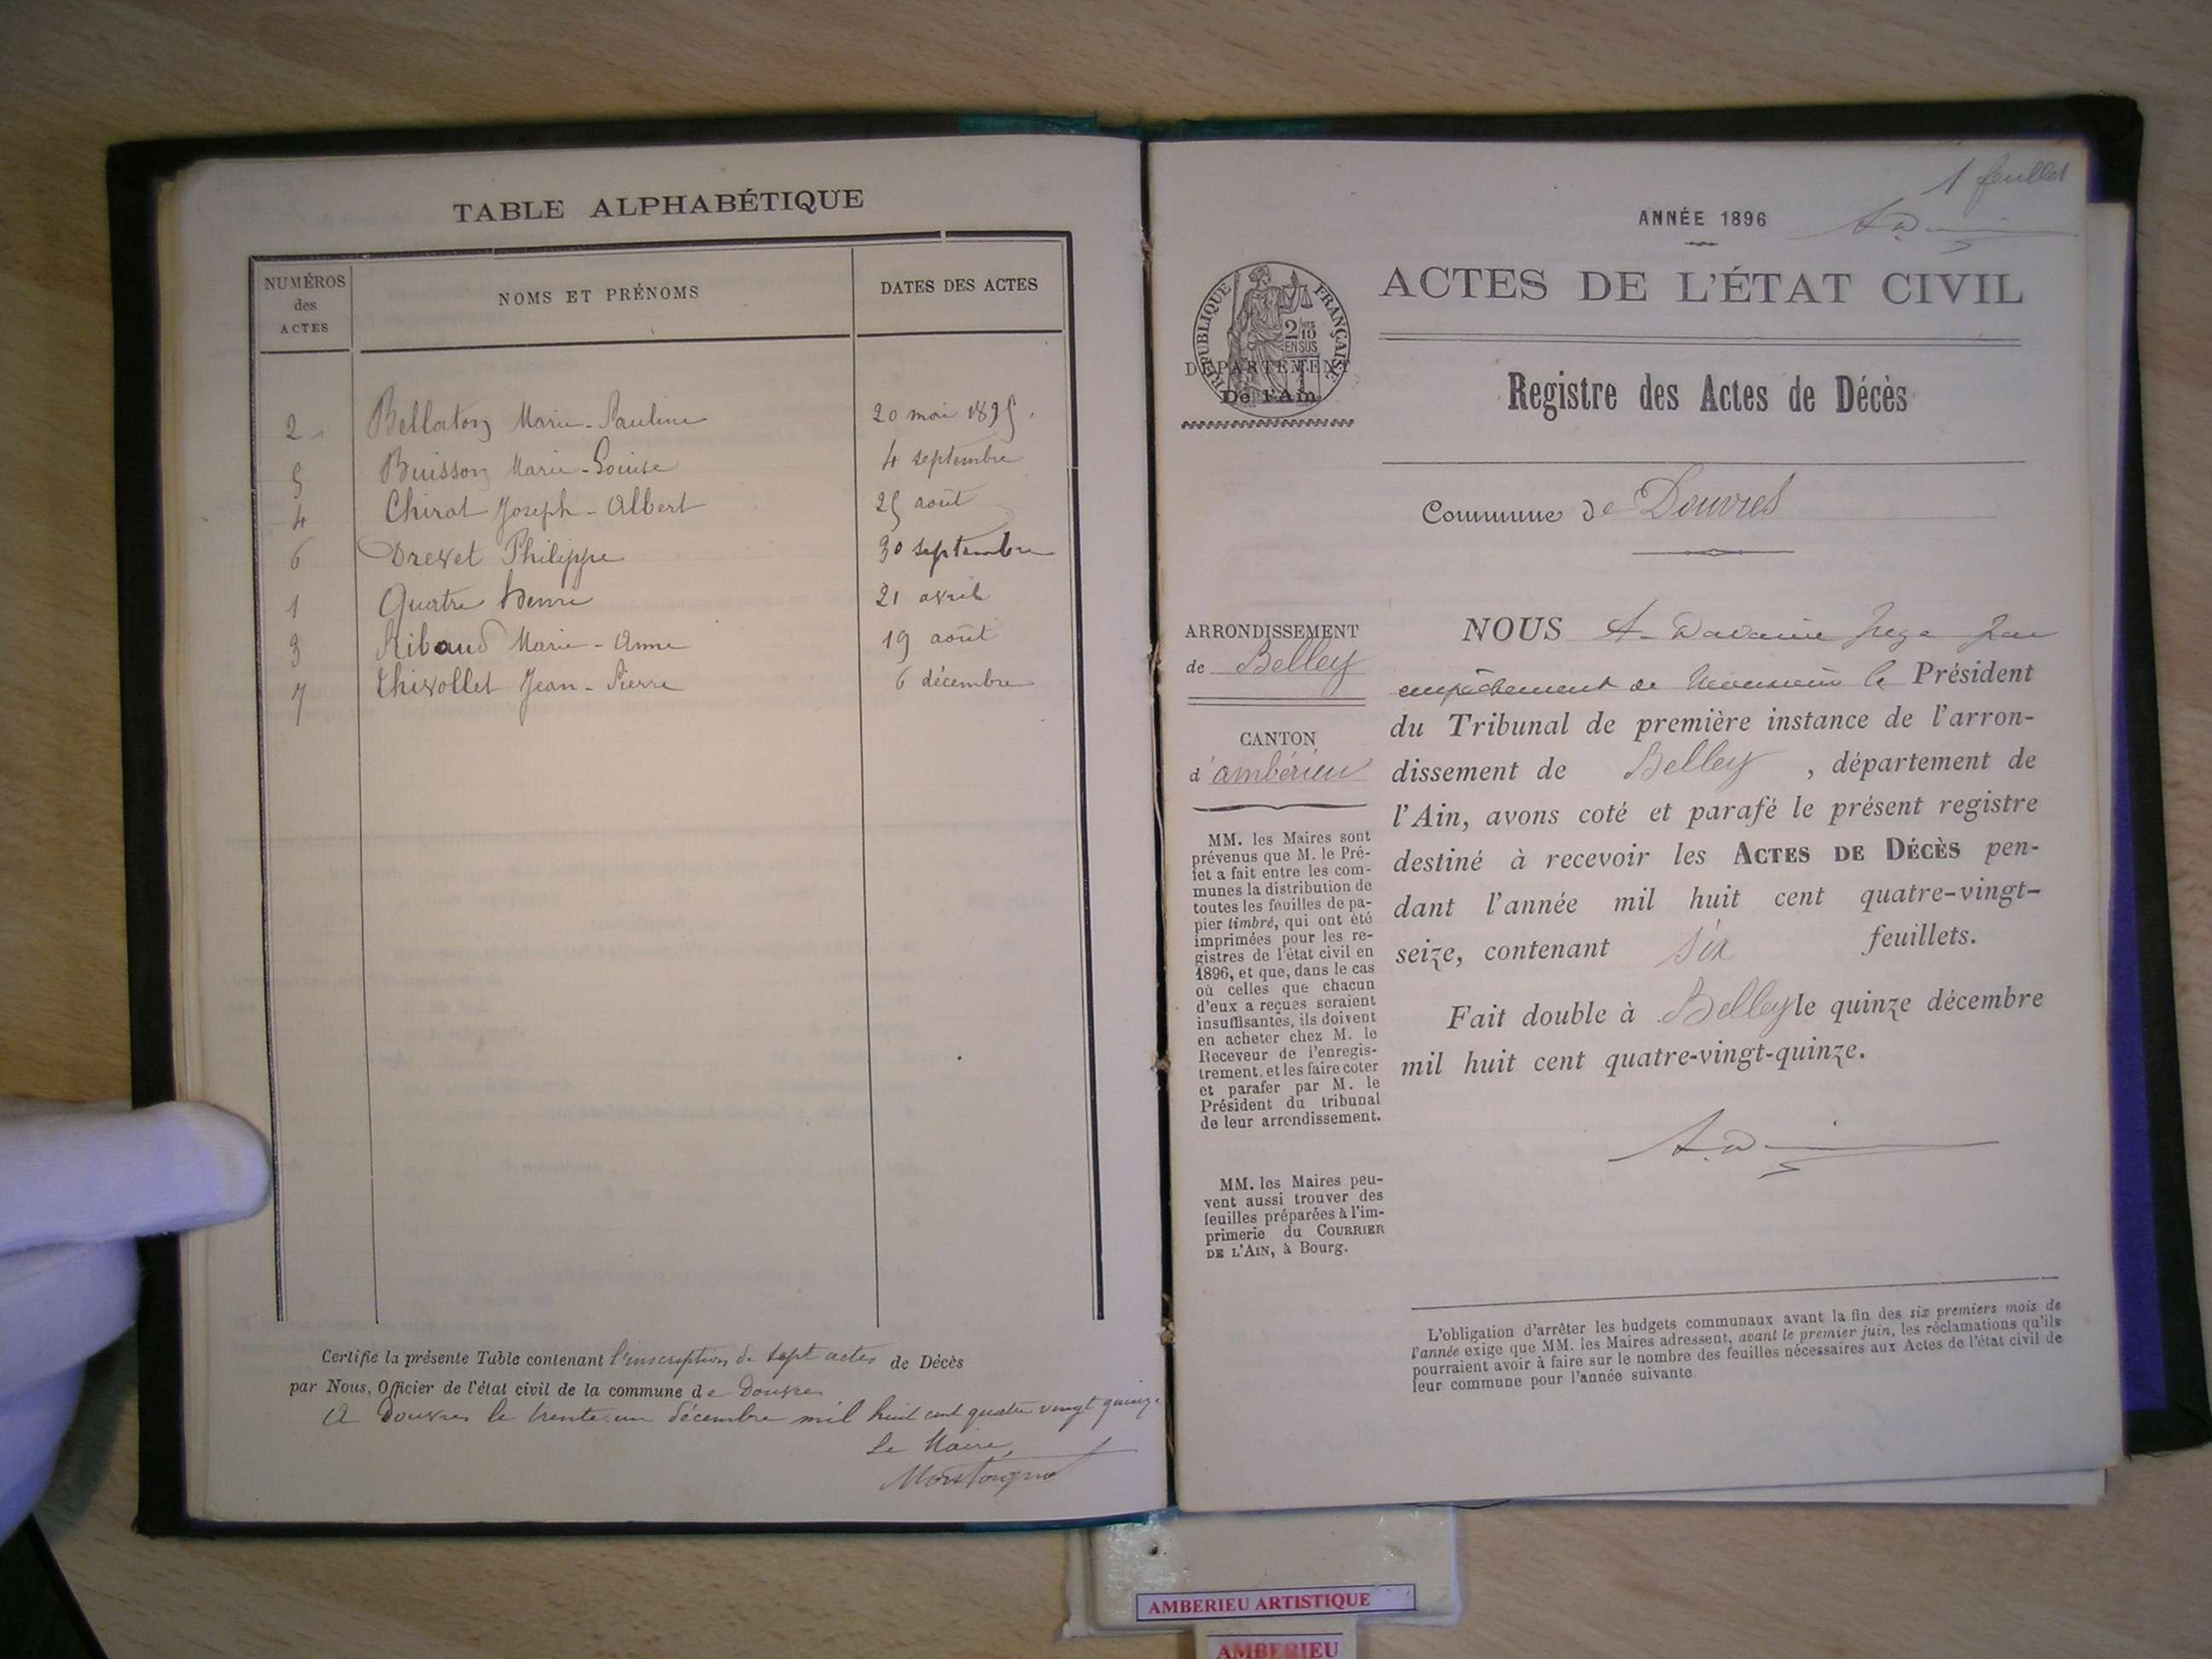 TABLE ALPHABÉTIQUE
NUMÉROS
des
ACTES
NOMS ET PRÉNOMS
DATES DES ACTES
2 Bellaton Marie-Pauline 20 mai 1895.
5 Buisson Marie-Louise 4 septembre
4 Chirat Joseph-Albert 25 août
6 Drevet Philippe 30 septembre
1 Quatre Henri 21 avril
3 Ribaud Marie-Anne 19 août
7 Thivollet Jean-Pierre 6 décembre
Certifié la présente Table contenant l'inscription de sept actes de Décès
par Nous, Officier de l'état civil de la commune de Douvres
A Douvres le trente un décembre mil huit cent quatre vingt quinze
Le Maire,
1 feuillet
ANNÉE 1896
ACTES DE L'ÉTAT CIVIL
RÉPUBLIQUE FRANÇAISE
2/10
EN SUS
DÉPARTEMENT
De l'Ain
Registre des Actes de Décès
Commune de Douvres
ARRONDISSEMENT
de Belley
CANTON
d'ambérieu
MM. les Maires sont
prévenus que M. le Pré-
fet a fait entre les com-
munes la distribution de
toutes les feuilles de pa-
pier timbré, qui ont été
imprimées pour les re-
gistres de l'état civil en
1896, et que, dans le cas
où celles que chacun
d'eux a reçues seraient
insuffisantes, ils doivent
en acheter chez M. le
Receveur de l'enregis-
trement, et les faire coter
et parafer par M. le
Président du tribunal
de leur arrondissement.
MM. les Maires peu-
vent aussi trouver des
feuilles préparées à l'im-
primerie du COURRIER
DE L'AIN, à Bourg.
NOUS A. Juge par
empêchement de Monsieur le Président
du Tribunal de première instance de l'arron-
dissement de Belley, département de
l'Ain, avons coté et parafé le présent registre
destiné à recevoir les ACTES DE DÉCÈS pen-
dant l'année mil huit cent quatre-vingt-
seize, contenant six feuillets.
Fait double à Belley le quinze décembre
mil huit cent quatre-vingt-quinze.
L'obligation d'arrêter les budgets communaux avant la fin des six premiers mois de
l'année exige que MM. les Maires adressent, avant le premier juin, les réclamations qu'ils
pourraient avoir à faire sur le nombre des feuilles nécessaires aux Actes de l'état civil de
leur commune pour l'année suivante.
AMBERIEU ARTISTIQUE
AMBERIEU